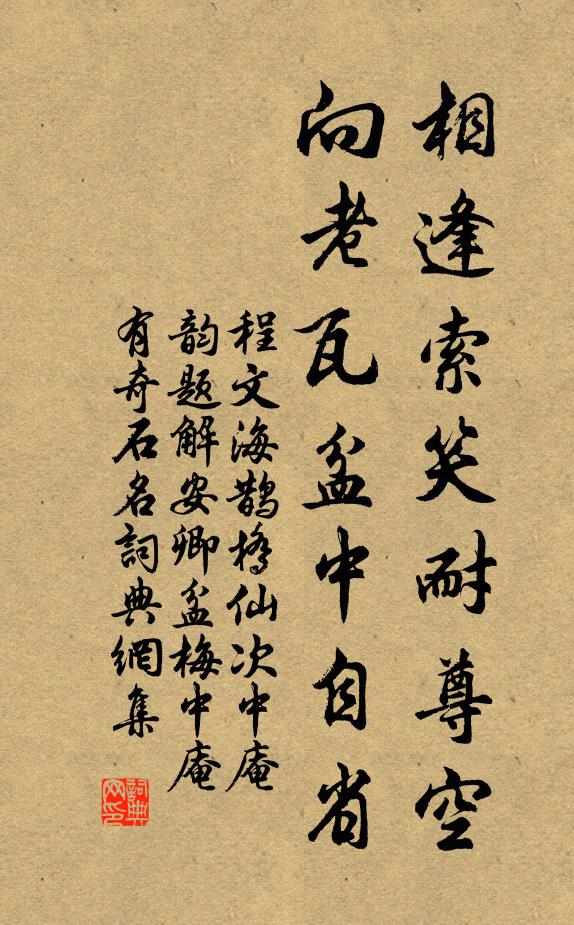 相逢索笑耐尊空
向老瓦盆中自省
程文海鹊橋仙次中庵
韵题解安卿盆梅中庵
有奇石名詞典網集
詞典
网印